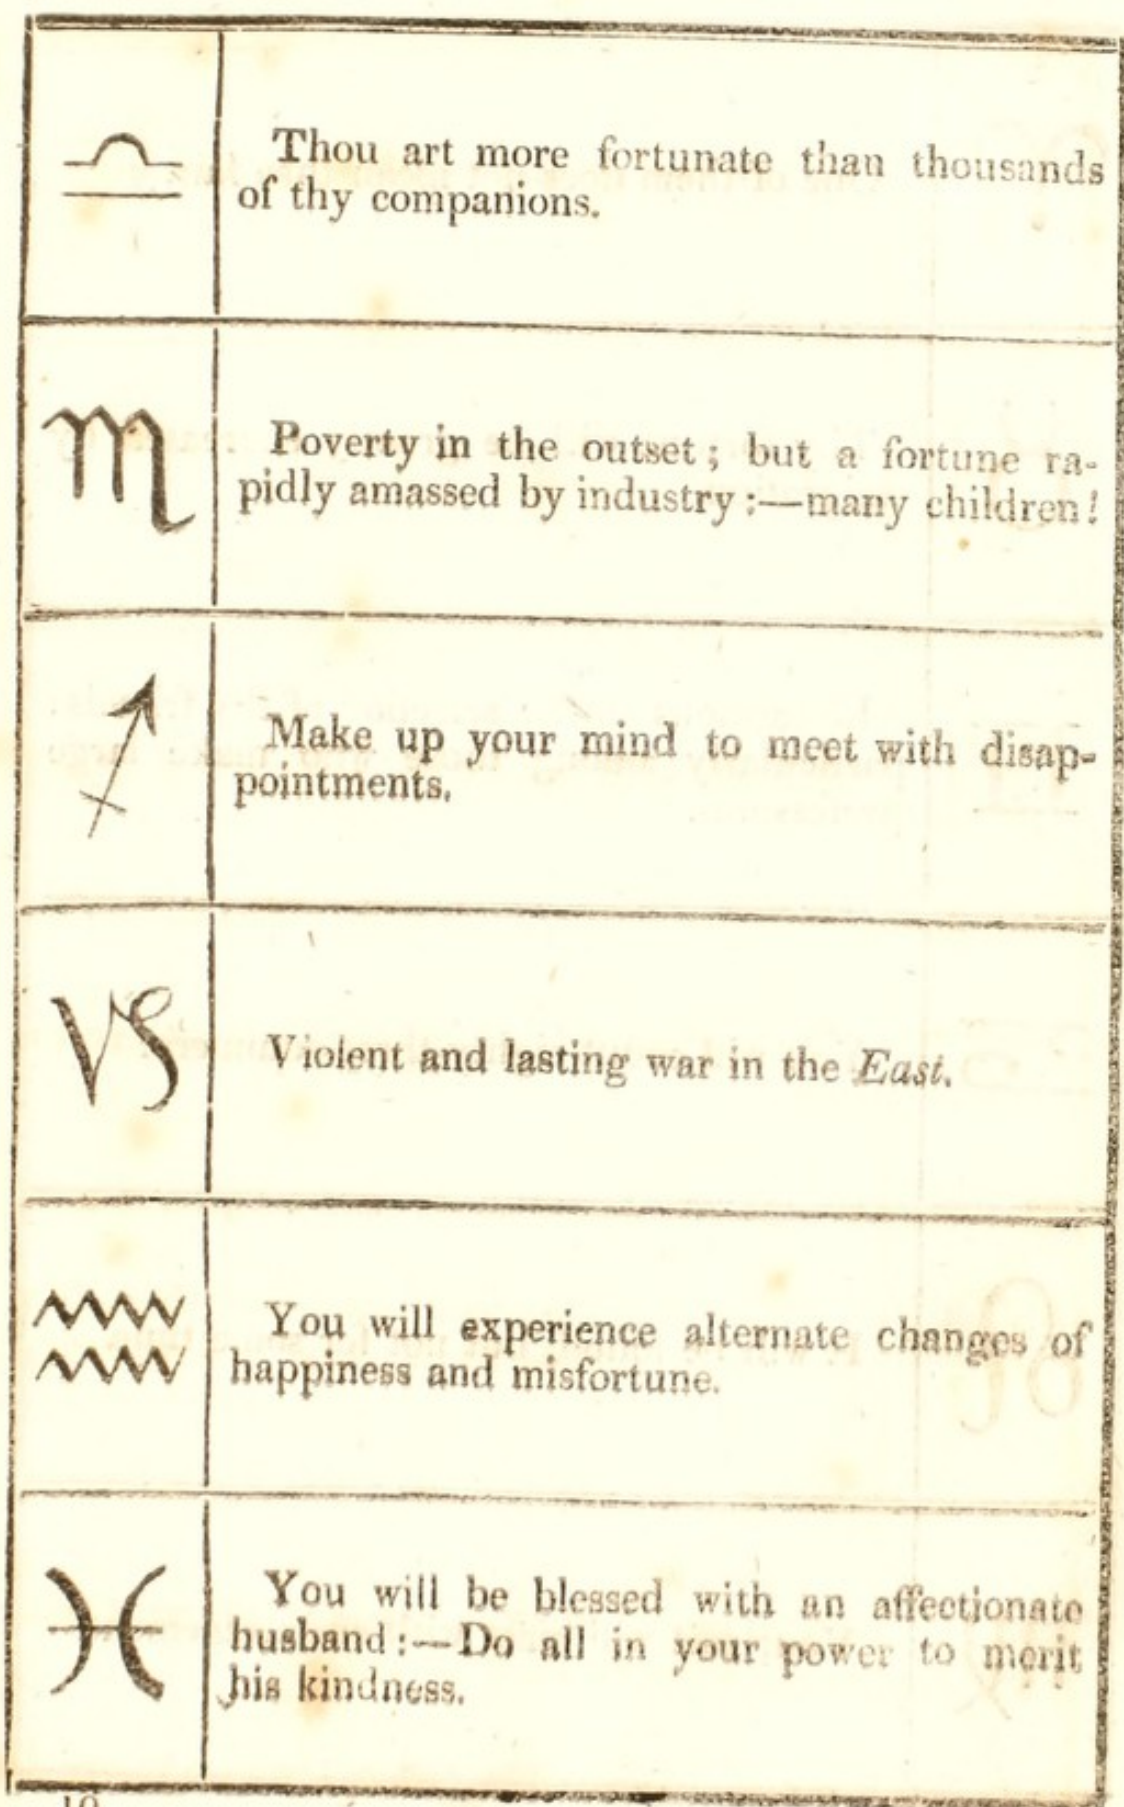 ♎ Thou art more fortunate than thousands
of thy companions.
♏ Poverty in the outset; but a fortune ra-
pidly amassed by industry:—many children!
♐ Make up your mind to meet with disap-
pointments.
♑ Violent and lasting war in the East.
♒ You will experience alternate changes of
happiness and misfortune.
♓ You will be blessed with an affectionate
husband:—Do all in your power to merit
his kindness.